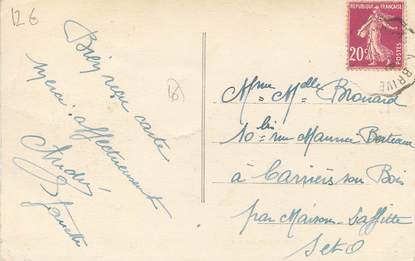 12€
Bien reçue carte
merci. affectueusement
André
RÉPUBLIQUE FRANÇAISE
20c
POSTES
BRIVE
Mme Melle Brouard
10 bis rue Maurice Berteaux
à Carrièrs sou Bois
par Maison-Laffitte
S et O